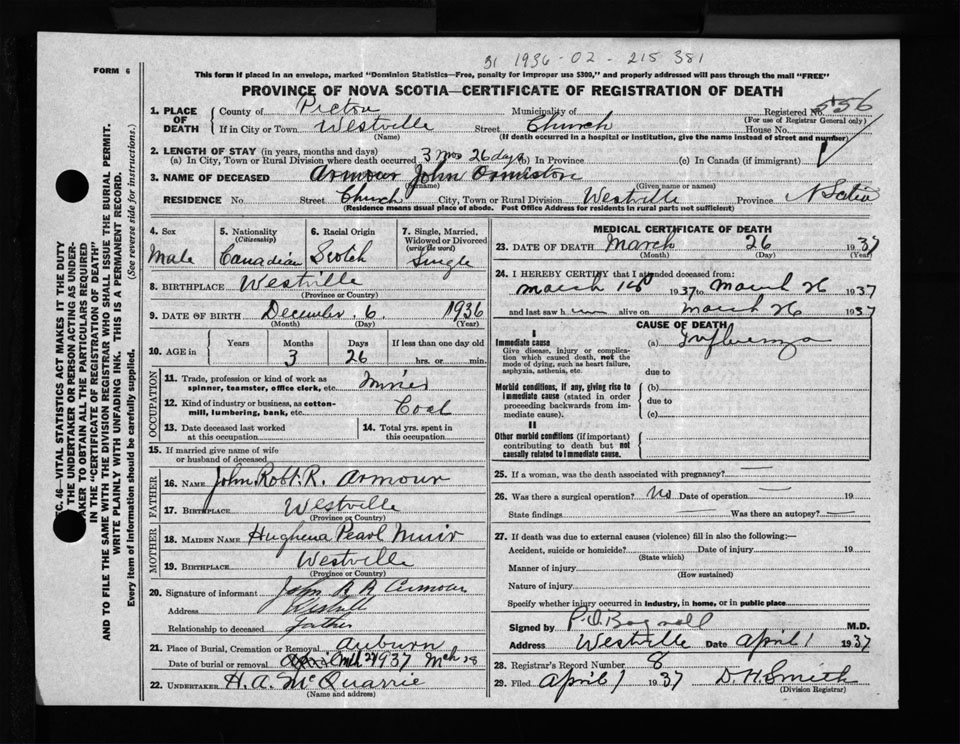 31 1936-02-215 381
FORM 6
This form if placed in an envelope, marked "Dominion Statistics—Free, penalty for improper use $300," and properly addressed will pass through the mail "FREE"
PROVINCE OF NOVA SCOTIA—CERTIFICATE OF REGISTRATION OF DEATH
1. PLACE OF DEATH County of Pictou Municipality of Registered No. 556
(For use of Registrar General only)
If in City or Town Westville Street Church House No.
(Name) (If death occurred in a hospital or institution, give the name instead of street and number)
2. LENGTH OF STAY (in years, months and days)
(a) In City, Town or Rural Division where death occurred 3 mos 26 days (b) In Province (c) In Canada (if immigrant)
3. NAME OF DECEASED Armour John Ormiston
(Surname) (Given name or names)
RESIDENCE No. Street Church City, Town or Rural Division Westville Province N Scotia
(Residence means usual place of abode. Post Office Address for residents in rural parts not sufficient)
4. Sex Male
5. Nationality (Citizenship) Canadian
6. Racial Origin Scotch
7. Single, Married, Widowed or Divorced (write the word) Single
8. BIRTHPLACE Westville
(Province or Country)
9. DATE OF BIRTH December 6 1936
(Month) (Day) (Year)
10. AGE in Years Months Days If less than one day old
3 26 hrs. or min.
OCCUPATION
11. Trade, profession or kind of work as spinner, teamster, office clerk, etc. Miner
12. Kind of industry or business, as cotton-mill, lumbering, bank, etc. Coal
13. Date deceased last worked at this occupation
14. Total yrs. spent in this occupation
15. If married give name of wife or husband of deceased
FATHER
16. NAME John Robt. R. Armour
17. BIRTHPLACE Westville
(Province or Country)
MOTHER
18. MAIDEN NAME Hughena Pearl Muir
19. BIRTHPLACE Westville
(Province or Country)
20. Signature of informant John R R Armour
Address Westville
Relationship to deceased Father
21. Place of Burial, Cremation or Removal Auburn
Date of burial or removal Mch 1937 Mch 28
22. UNDERTAKER H. A. McQuarrie
(Name and address)
MEDICAL CERTIFICATE OF DEATH
23. DATE OF DEATH March 26 1937
(Month) (Day) (Year)
24. I HEREBY CERTIFY that I attended deceased from:
March 1937 to March 26 1937
and last saw h alive on March 26 1937
CAUSE OF DEATH
I
Immediate cause (a) Influenza
Give disease, injury or complication which caused death, not the mode of dying, such as heart failure, asphyxia, asthenia, etc.
due to
Morbid conditions, if any, giving rise to immediate cause (stated in order proceeding backwards from immediate cause).
(b)
due to
(c)
II
Other morbid conditions (if important) contributing to death but not causally related to immediate cause.
25. If a woman, was the death associated with pregnancy? —
26. Was there a surgical operation? No Date of operation — 19
State findings — Was there an autopsy? —
27. If death was due to external causes (violence) fill in also the following:—
Accident, suicide or homicide? Date of injury 19
(State which)
Manner of injury
(How sustained)
Nature of injury
Specify whether injury occurred in industry, in home, or in public place
Signed by P. O. Bagnall M.D.
Address Westville Date April 1 1937
28. Registrar's Record Number 8
29. Filed April 1 1937 D H Smith
(Division Registrar)
SEC. 46—VITAL STATISTICS ACT MAKES IT THE DUTY
OF THE UNDERTAKER OR PERSON ACTING AS UNDER-
TAKER TO OBTAIN ALL THE PARTICULARS REQUIRED
IN THE "CERTIFICATE OF REGISTRATION OF DEATH"
AND TO FILE THE SAME WITH THE DIVISION REGISTRAR WHO SHALL ISSUE THE BURIAL PERMIT.
WRITE PLAINLY WITH UNFADING INK. THIS IS A PERMANENT RECORD.
Every item of information should be carefully supplied. (See reverse side for instructions.)